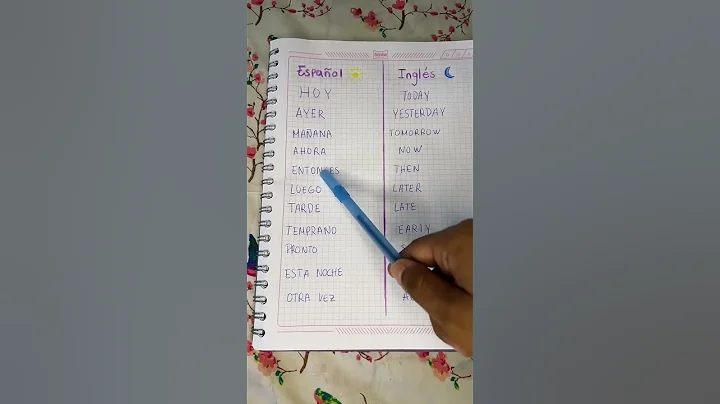 Español Inglés
HOY TODAY
AYER YESTERDAY
MAÑANA TOMORROW
AHORA NOW
THEN
LUEGO LATER
TARDE LATE
TEMPRANO EARLY
PRONTO
ESTA NOCHE
OTRA VEZ